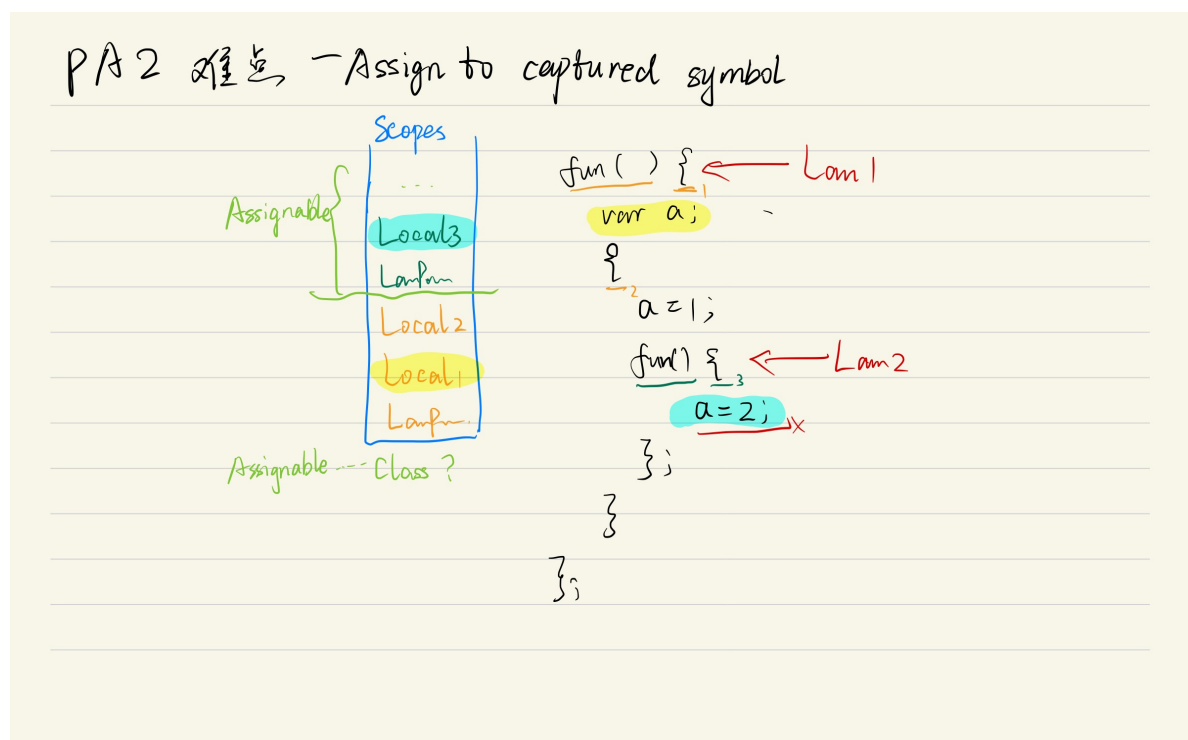 PA2 难点 - Assign to captured symbol
Scopes
...
Assignable
Local3
LamPrm
Local2
Local1
LamPrm
Assignable ---- Class ?
fun ( ) { 1 ← Lam 1
var a;
{ 2
a = 1;
fun() { 3 ← Lam 2
a = 2; x
};
}
};